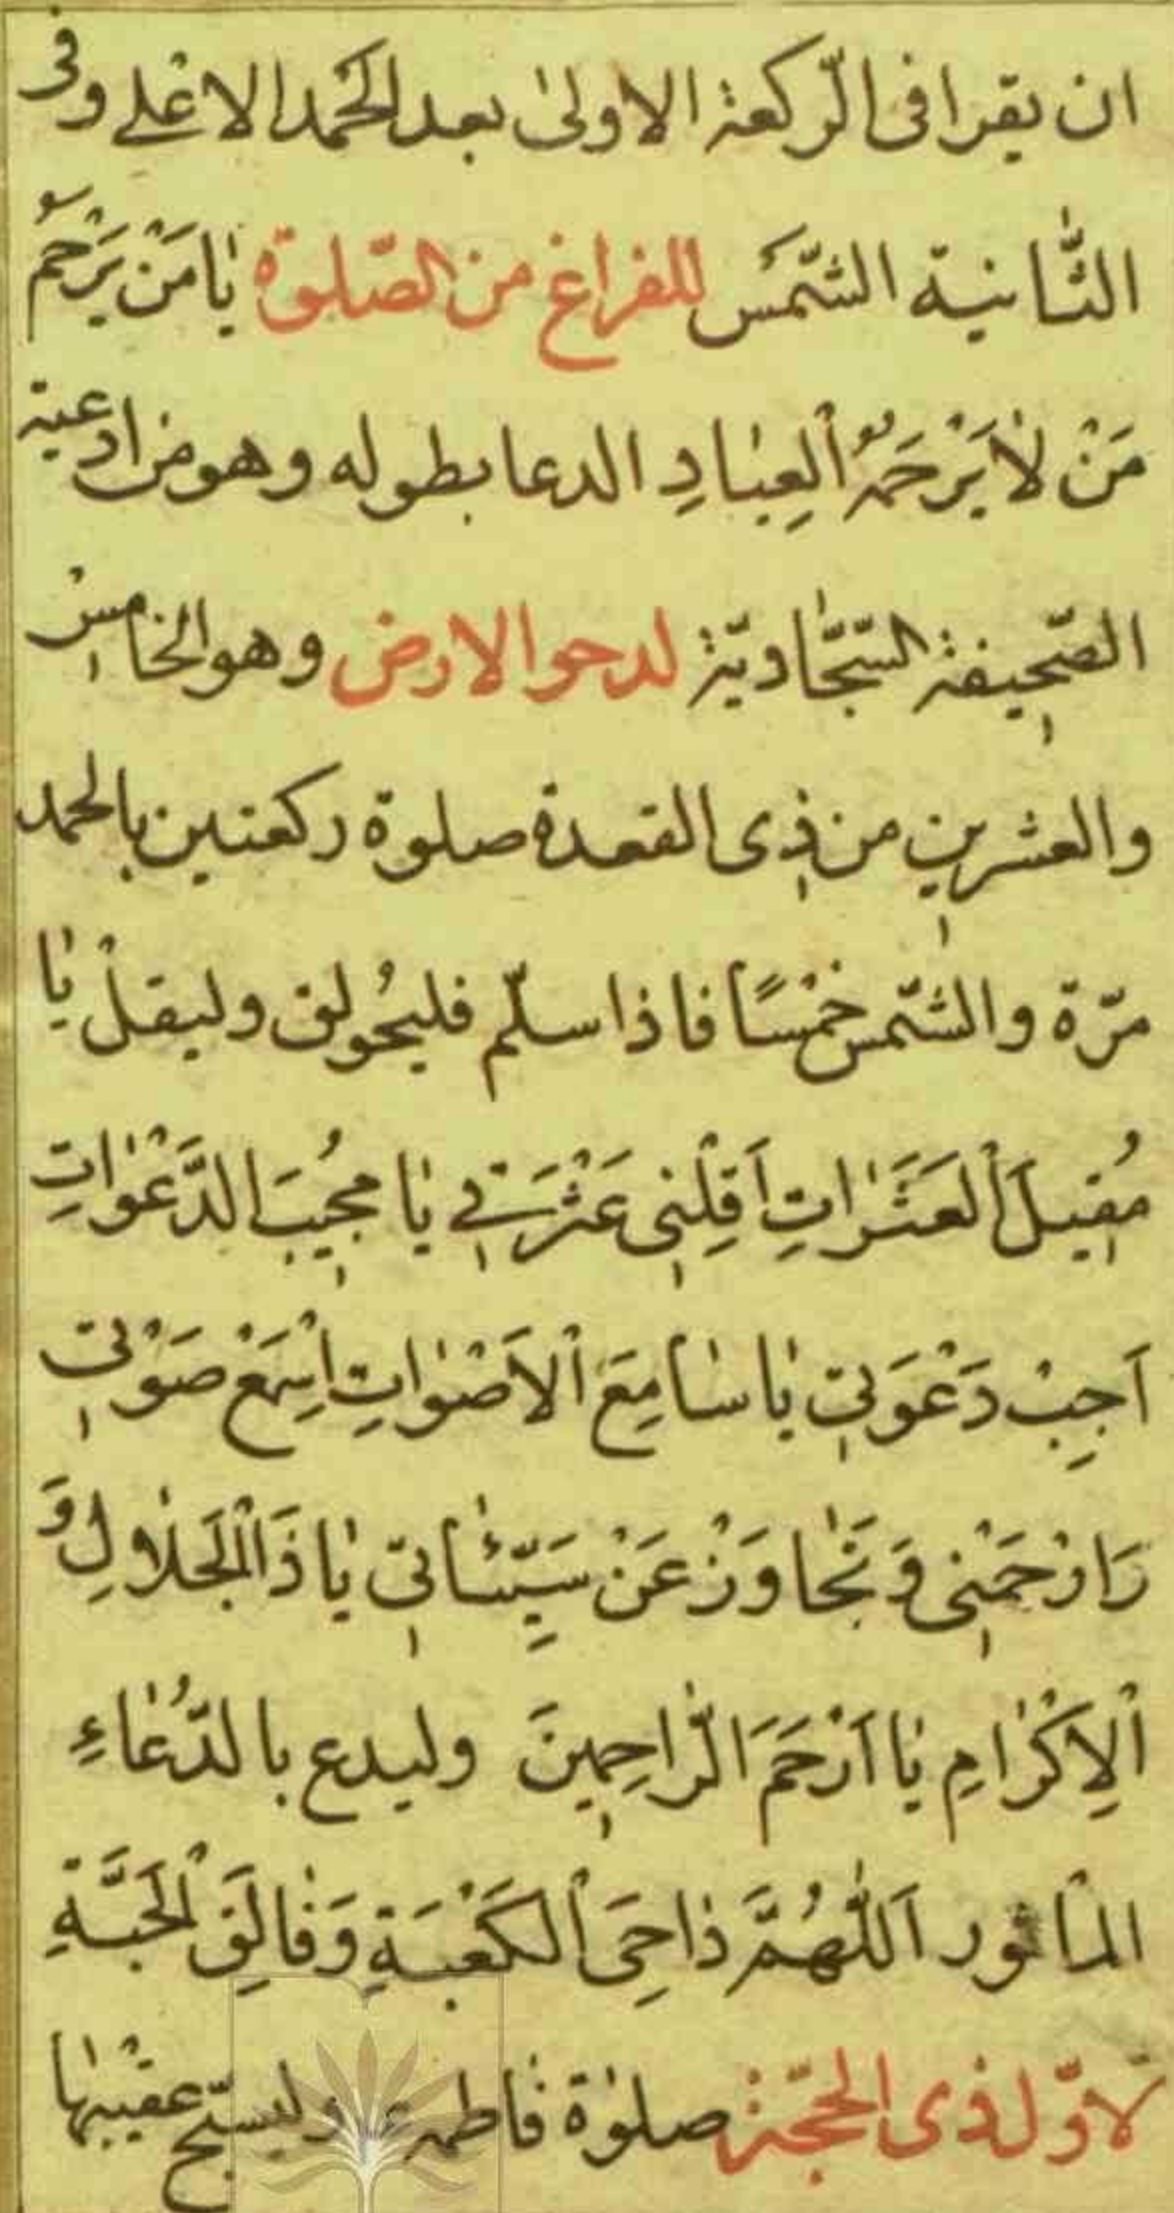 ان يقرا فى الرّكعة الاولىٰ بعد الحَمد الاعْلے وفى
الثّانية الشّمَس للفراغ من الصّلوة يٰا مَنْ يَرْحَمُ
مَنْ لٰا يَرْحَمُهُ اَلْعِبٰادِ الدعا بطوله وهو من ادعية
الصّحيفة السّجّٰاديّة لدحو الارض وهو الخامسْ
والعشرين من ذى القعدة صلوة ركعتين بالحمد
مرّة والشّمس خمْسًا فاذا سلّم فليحُولق وليقلْ يٰا
مُقيلَ اَلْعَثَرٰاتِ اَقِلْنى عَثْرَتي يٰا مجُيبَ الدَّعْوٰاتِ
اَجِبْ دَعْوَتى يٰا سٰامِعَ اْلاَصْوٰاتِ اِسْمَعْ صَوْتى
وَارْحَمْنى وَتَجٰاوَزْ عَنْ سَيِّئٰاتى يٰا ذَا اْلجَلٰالِ وَ
اْلاِكْرٰامِ يٰا اَرْحَمَ الرّٰاحِمينَ وليدع بالدُّعٰاءِ
المأثور اَللّٰهُمَّ دٰاحِىَ اْلكَعْبَةِ وَفٰالِقَ اْلحَبَّةِ
لاوّل ذى الحجّة صلوٰة فٰاطمة ع وليسبّح عقيبهٰا